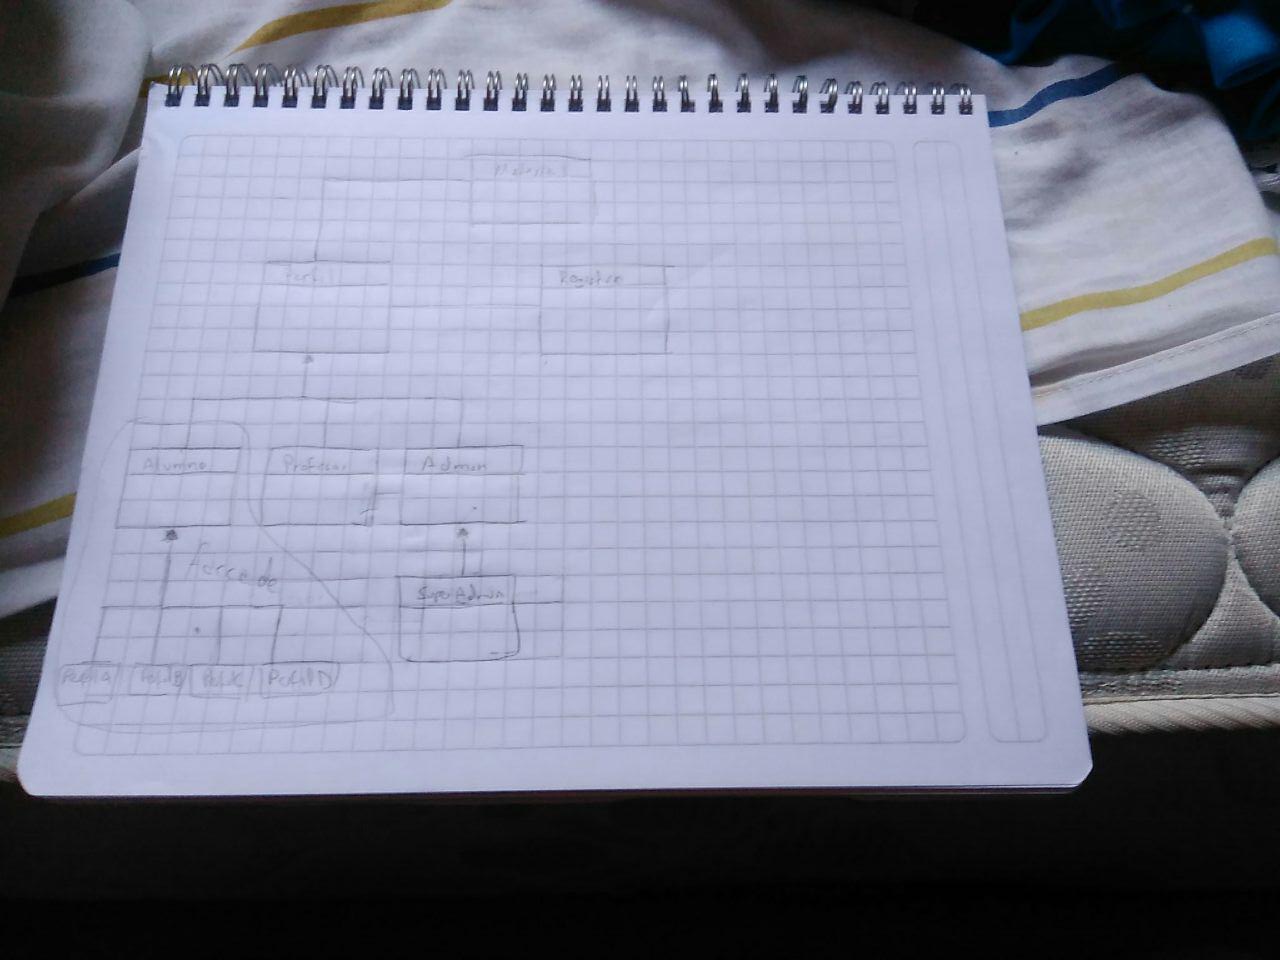 Perfil
Registro
Alumno
Profesor
Admon
Facade
SuperAdmon
PerfilA
PerfilB
PerfilC
PerfilD